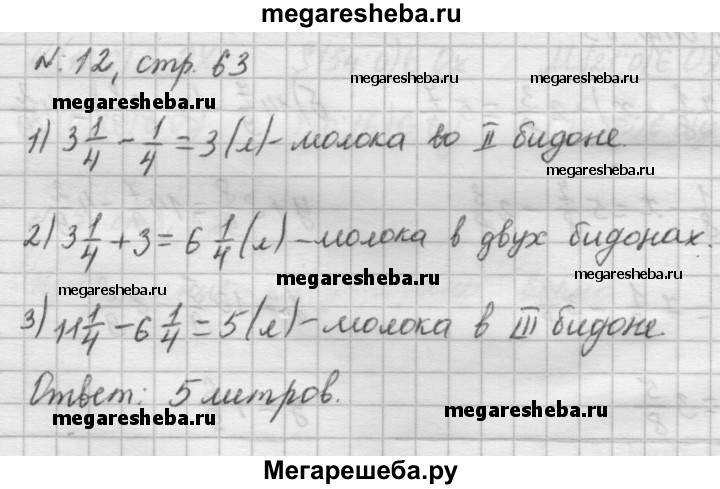 megaresheba.ru
N: 12, стр. 63
megaresheba.ru
megaresheba.ru
1) 3 1/4 - 1/4 = 3 (л) - молока во II бидоне.
megaresheba.ru
2) 3 1/4 + 3 = 6 1/4 (л) - молока в двух бидонах.
megaresheba.ru
megaresheba.ru
megaresheba.ru
3) 11 1/4 - 6 1/4 = 5 (л) - молока в III бидоне.
Ответ: 5 литров.
megaresheba.ru
megaresheba.ru
Мегарешеба.ру